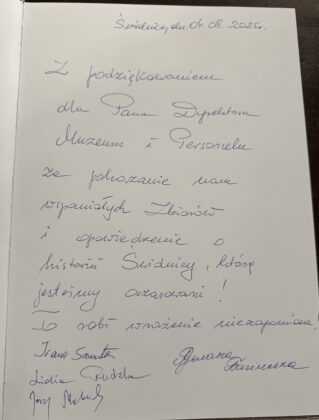 Świdnica, dn. 04.08.2025r.
Z podziękowaniem
dla Pana Dyrektora
Muzeum i Personelu
za pokazanie nam
wspaniałych Zbiorów
i opowiedzenie o
historii Świdnicy, którą
jesteśmy oczarowani!
To robi wrażenie niezapomniane!
Lidia
Jerzy